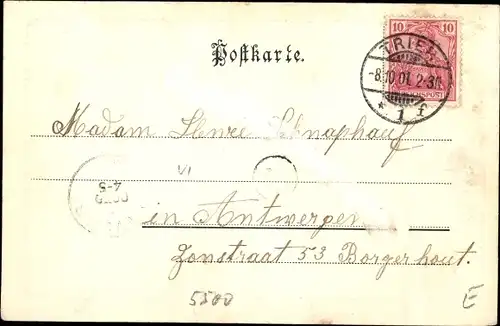 10 10
Postkarte.
TRIER
-8.10.01. 2-3N.
* 1 f
Madam Henri Schnaphauf
VI
4-5
in Antwerpen
Zonstraat 53 Borgerhout.
5500
E